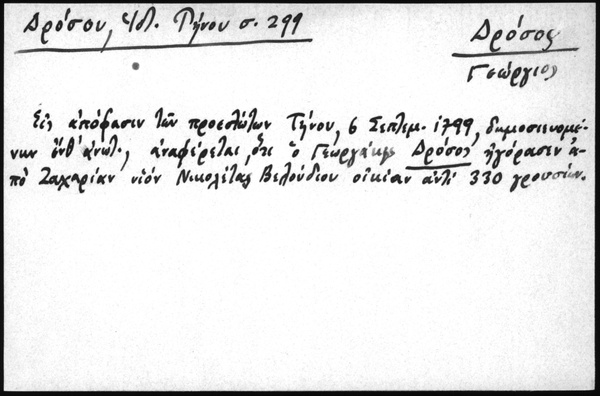 Δρόσου, Ἱστ. Τήνου σ. 299
Δρόσος
Γεώργιος
Εἰς ἀπόφασιν τῶν προεστώτων Τήνου, 6 Σεπτεμ. 1799, δημοσιευομέ-
νην ἔνθ' ἀνωτ., ἀναφέρεται, ὅτι ὁ Γεωργάκης Δρόσος ἠγόρασεν ἀ-
πό Ζαχαρίαν υἱόν Νικολέτας Βελούδιου οἰκίαν ἀντί 330 γροσσίων.